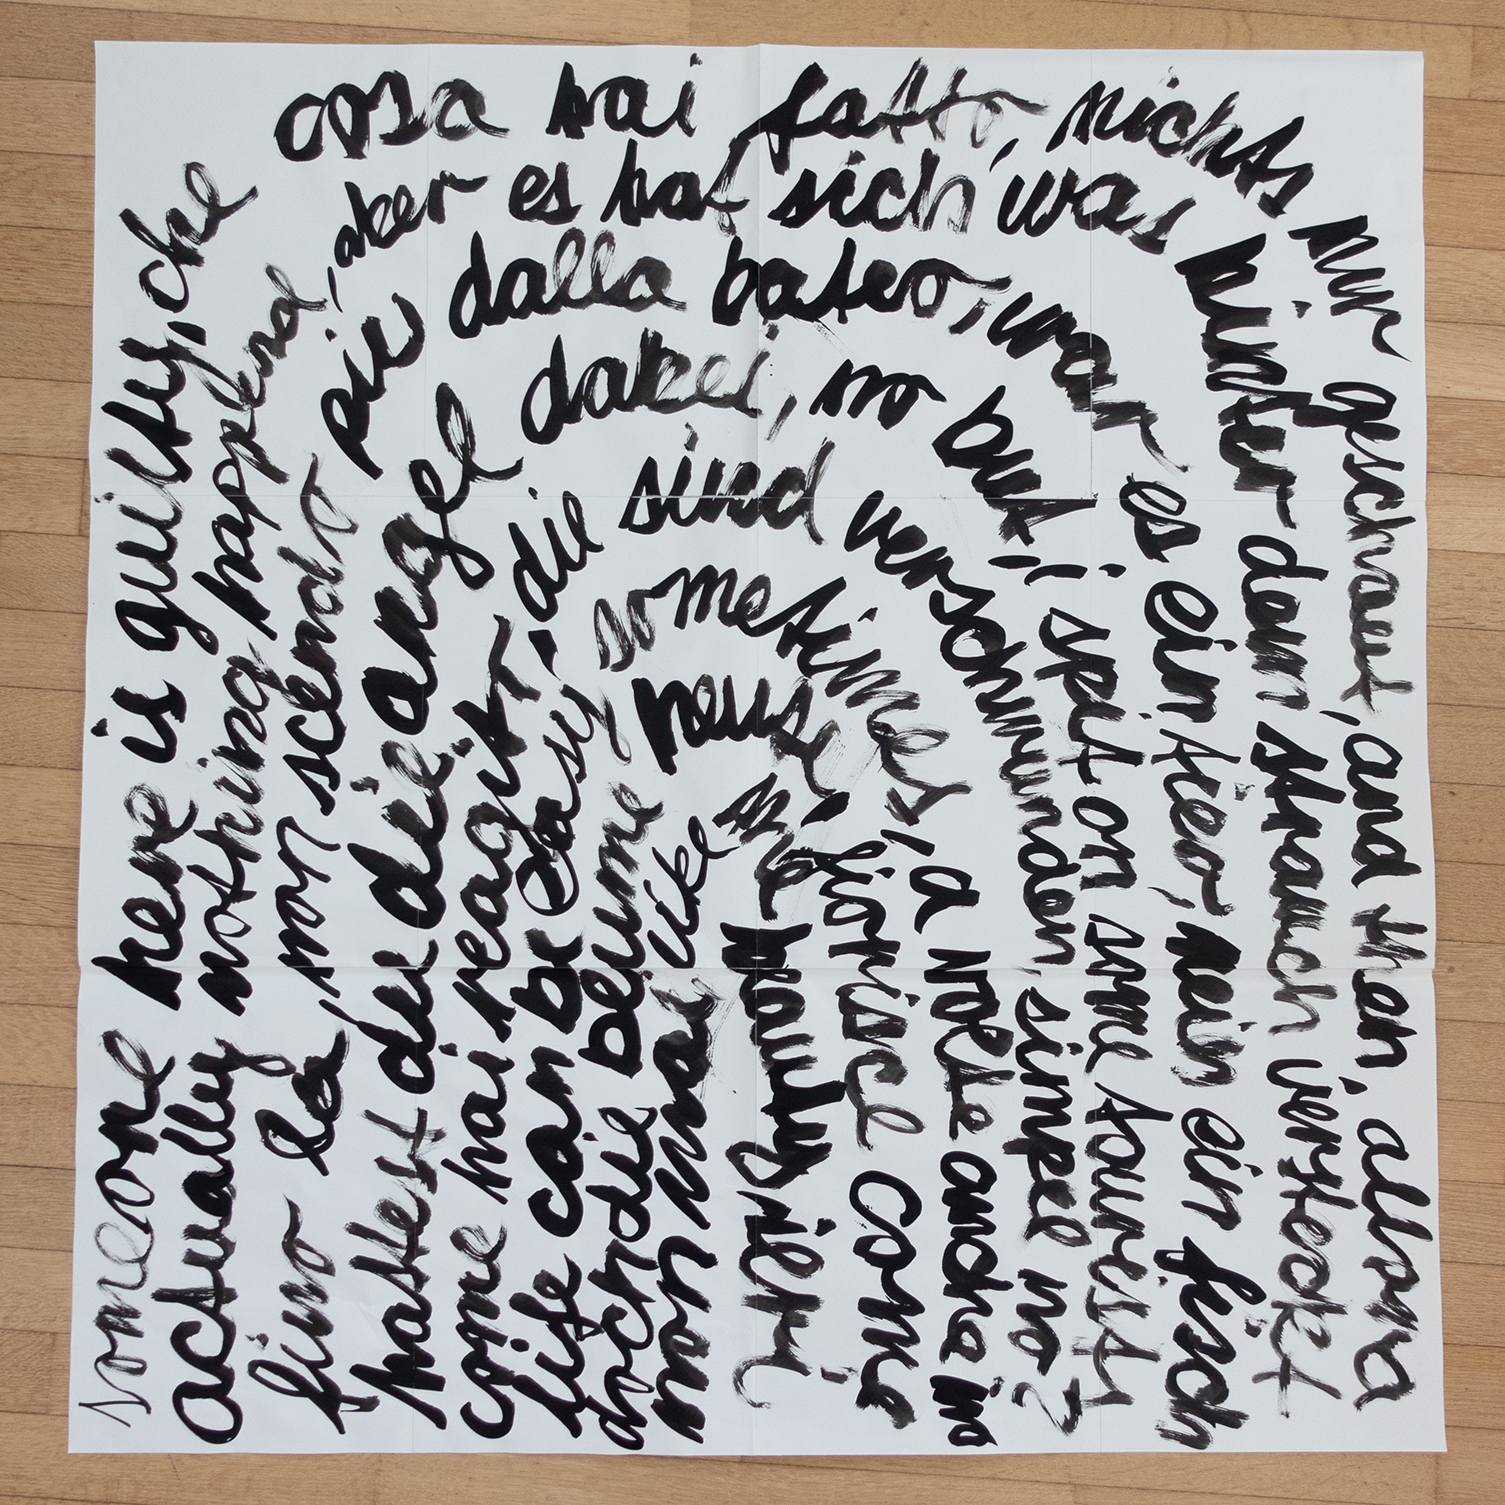 someone here is guilty, che cosa hai fatto, nichts nur geschaut, and then, allora
actually nothing happend, aber es hat sich was hinter dem strauch versteckt
fino là, non scendo più dalla bateo, war es ein tier, nein ein fisch
hattest du die angel dabei, no but, i spit on some tourists
come hai reagito, die sind verschwunden, simpel no?
life can be easy, sometimes, a volte anche
doch die beume fiorisce come
non mai like the beauty